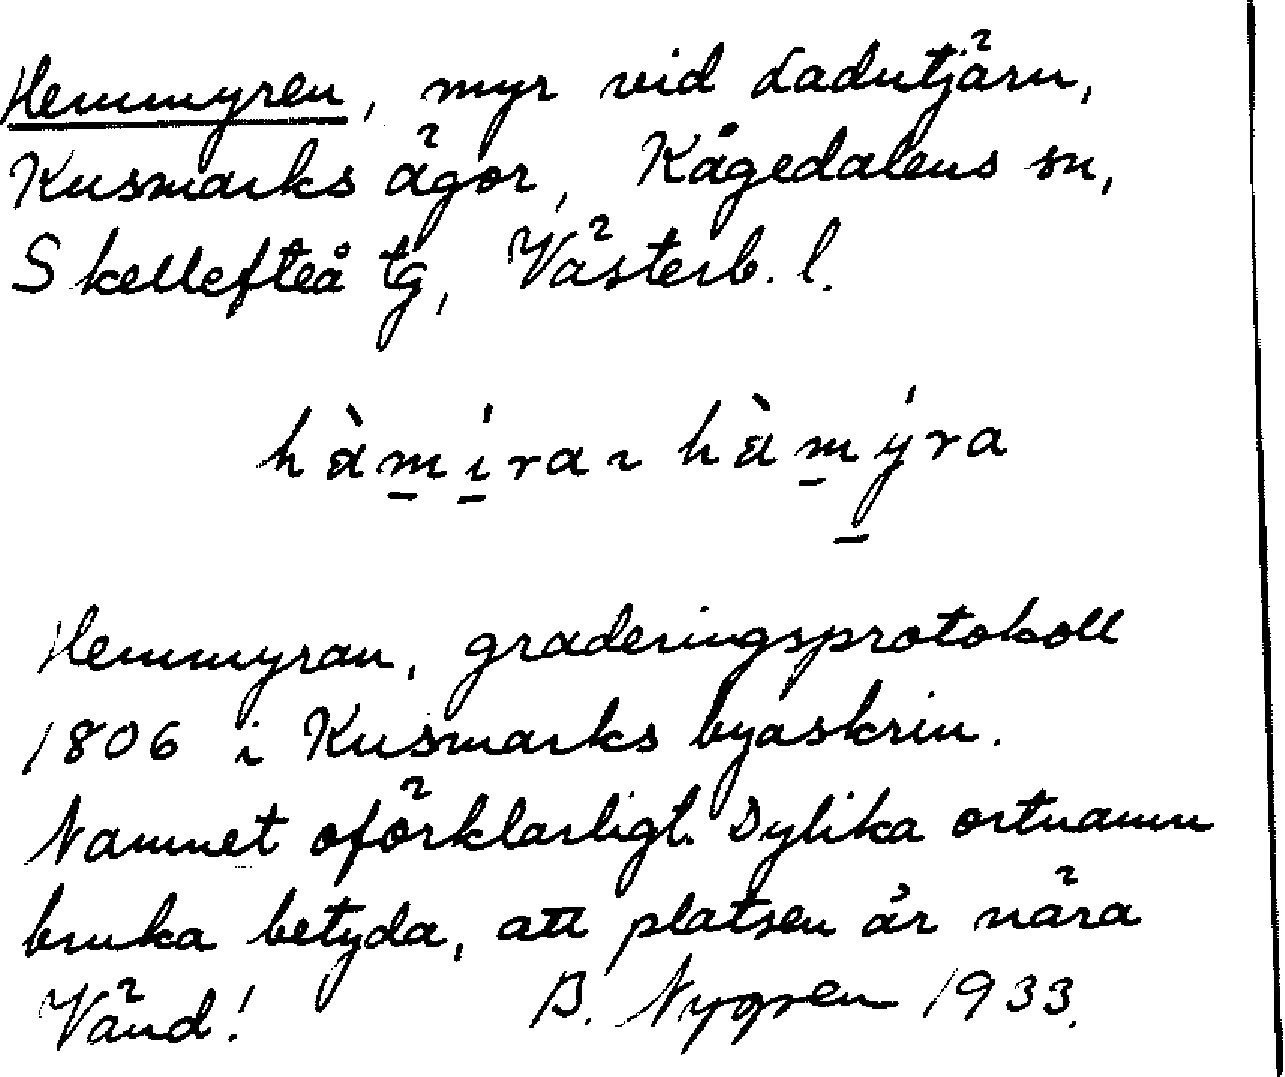 Hemmyren, myr vid Ladutjärn,
Kusmarks ägor, Kågedalens sn,
Skellefteå tg, Västerb. l.
hàmíra ~ hàmýra
Hemmyran, graderingsprotokoll
1806 i Kusmarks byaskrin.
Namnet oförklarligt. Dylika ortnamn
bruka betyda, att platsen är nära
Vänd! B. Nygren 1933.